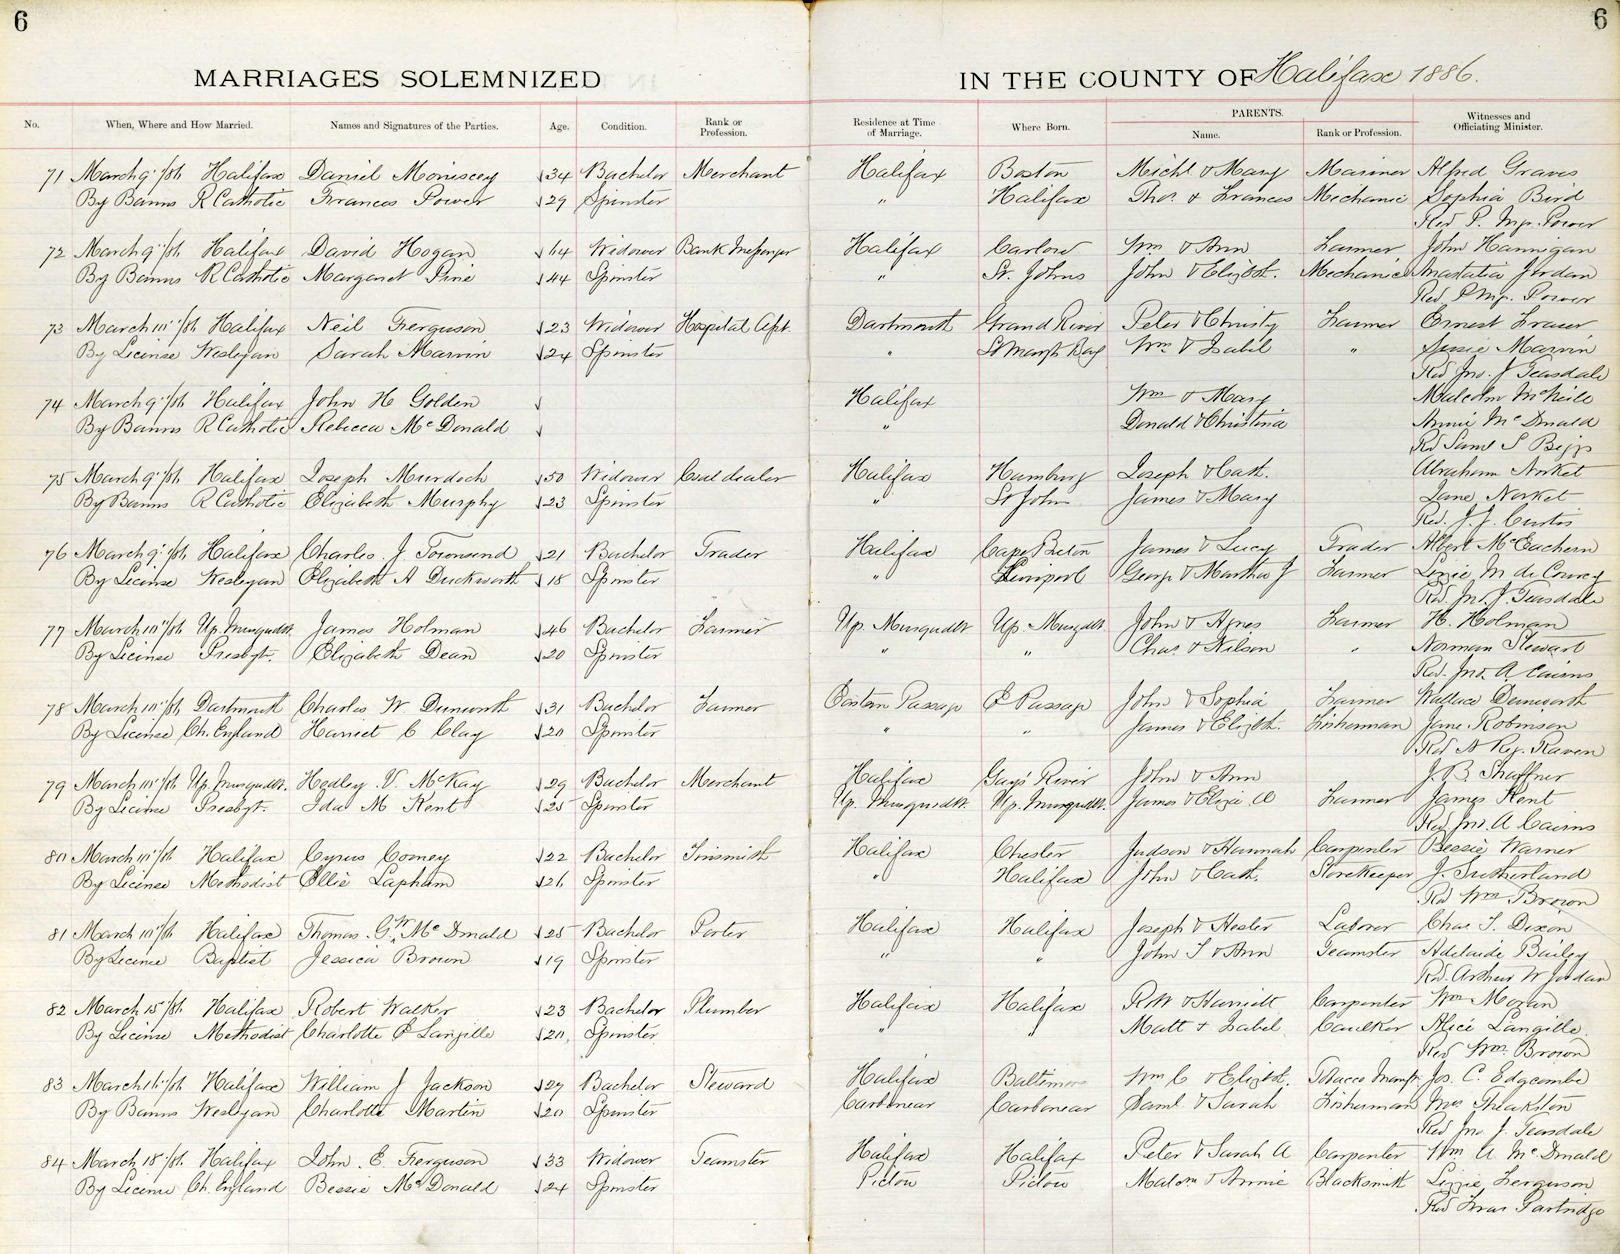 6
6
MARRIAGES SOLEMNIZED IN THE COUNTY OF Halifax 1886.
No. When, Where and How Married. Names and Signatures of the Parties. Age. Condition. Rank or Profession. Residence at Time of Marriage. Where Born. PARENTS. Name. Rank or Profession. Witnesses and Officiating Minister.
71 March 9 /86 Halifax Daniel √34 Bachelor Merchant Halifax Boston Michl & Mary Mariner Alfred Graves
By Banns R Catholic Frances Power √29 Spinster " Halifax Thos. & Frances Mechanic Sophia Bird
Rev P. Power
72 March 9 /86 Halifax David Hogan √64 Widower Bank Messenger Halifax Carlow Wm & Ann Farmer John Hannigan
By Banns R Catholic Margaret √44 Spinster " St. Johns John & Elizbth. Mechanic Anastatia Jordan
Rev P Power
73 March 10 /86 Halifax Neil Ferguson √23 Widower Hospital Apt. Dartmouth Grand River Peter & Christy Farmer Ernest Fraser
By License Wesleyan Sarah Marvin √24 Spinster " St Margts Bay Wm & Isabel " Susie Marvin
Rev Jno. J Teasdale
74 March 9 /86 Halifax John H Golden √ Halifax Wm & Mary Malcolm McNeill
By Banns R Catholic Rebecca McDonald √ " Donald & Christina Annie McDonald
Rev Saml
75 March 9 /86 Halifax Joseph Murdoch √50 Widower Coal dealer Halifax Hamburg Joseph & Cath. Abraham Norket
By Banns R Catholic Elizabeth Murphy √23 Spinster " St John James & Mary Jane Norket
Rev. J. J. Curtis
76 March 9 /86 Halifax Charles J. Townsend √21 Bachelor Trader Halifax Cape Breton James & Lucy Trader Albert McEachern
By License Wesleyan Elizabeth A Duckworth √18 Spinster " Liverpool George & Martha J Farmer Lizzie M de Courcy
Rev Jno. J. Teasdale
77 March 10 /86 Up. Musqudbt. James Holman √46 Bachelor Farmer Up. Musqudbt Up. Musqdbt. John & Agnes Farmer H. Holman
By License Presbyt. Elizabeth Dean √20 Spinster " " Chas. & Norman Stewart
Rev. Jno. A Cairns
78 March 10 /86 Dartmouth Charles W Dunworth √31 Bachelor Farmer Eastern Passage E Passage John & Sophia Farmer Wallace Dunworth
By License Ch. England Harriet C Clay √20 Spinster " " James & Elizbth. Fisherman Jane Robinson
Rev N Raven
79 March 10 /86 Up. Musqudbt. Hedley V. McKay √29 Bachelor Merchant Halifax Gays River John & Ann J. B. Shaffner
By License Presbyt. Ida M Kent √25 Spinster Up. Musqudbt. Up. Musqudbt. James & Eliza Farmer James Kent
Rev Jno. A Cairns
80 March 10 /86 Halifax Cyrus Corney √22 Bachelor Tinsmith Halifax Chester Judson & Hannah Carpenter Bessie Warner
By License Methodist Ellie Lapham √26 Spinster " Halifax John & Cath. Storekeeper J. Sutherland
Rev Wm Brown
81 March 10 /86 Halifax Thomas G. W McDonald √25 Bachelor Porter Halifax Halifax Joseph & Hester Laborer Chas T. Dixon
By License Baptist Jessica Brown √19 Spinster " " John T & Ann Teamster Adelaide Bailey
Rev. Arthur W Jordan
82 March 15 /86 Halifax Robert Walker √23 Bachelor Plumber Halifax Halifax R W & Harriett Carpenter Wm Moran
By License Methodist Charlotte E Langille √20 Spinster " " Matt & Isabel Caulker Alice Langille
Rev Wm. Brown
83 March 16 /86 Halifax William J Jackson √27 Bachelor Steward Halifax Baltimore Wm C & Elizbt. Tobacco Manftr Jos. C. Edgcombe
By Banns Wesleyan Charlotte Martin √20 Spinster Carbonear Carbonear Saml & Sarah Fisherman Mrs. Theakston
Rev Jno J. Teasdale
84 March 18 /86 Halifax John E. Ferguson √33 Widower Teamster Halifax Halifax Peter & Sarah A Carpenter Wm A McDonald
By License Ch. England Bessie McDonald √24 Spinster Pictou Pictou Malcm & Annie Blacksmith Lizzie Ferguson
Rev Fras Partridge